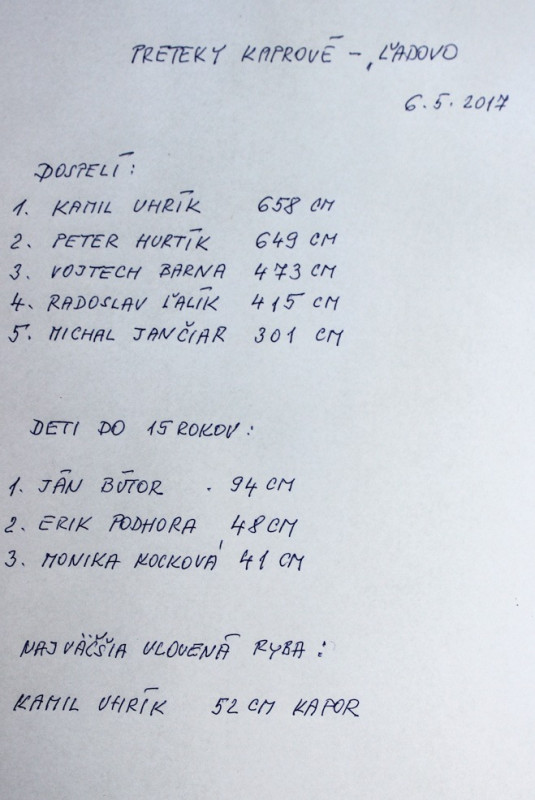 PRETEKY KAPROVÉ - ĽADOVO
6.5.2017
DOSPELÍ:
1. KAMIL UHRÍK 658 CM
2. PETER HURTÍK 649 CM
3. VOJTECH BARNA 473 CM
4. RADOSLAV ĽALÍK 415 CM
5. MICHAL JANČIAR 301 CM
DETI DO 15 ROKOV:
1. JÁN BÚTOR 94 CM
2. ERIK PODHORA 48 CM
3. MONIKA KOCKOVÁ 41 CM
NAJVÄČŠIA ULOVENÁ RYBA:
KAMIL UHRÍK 52 CM KAPOR